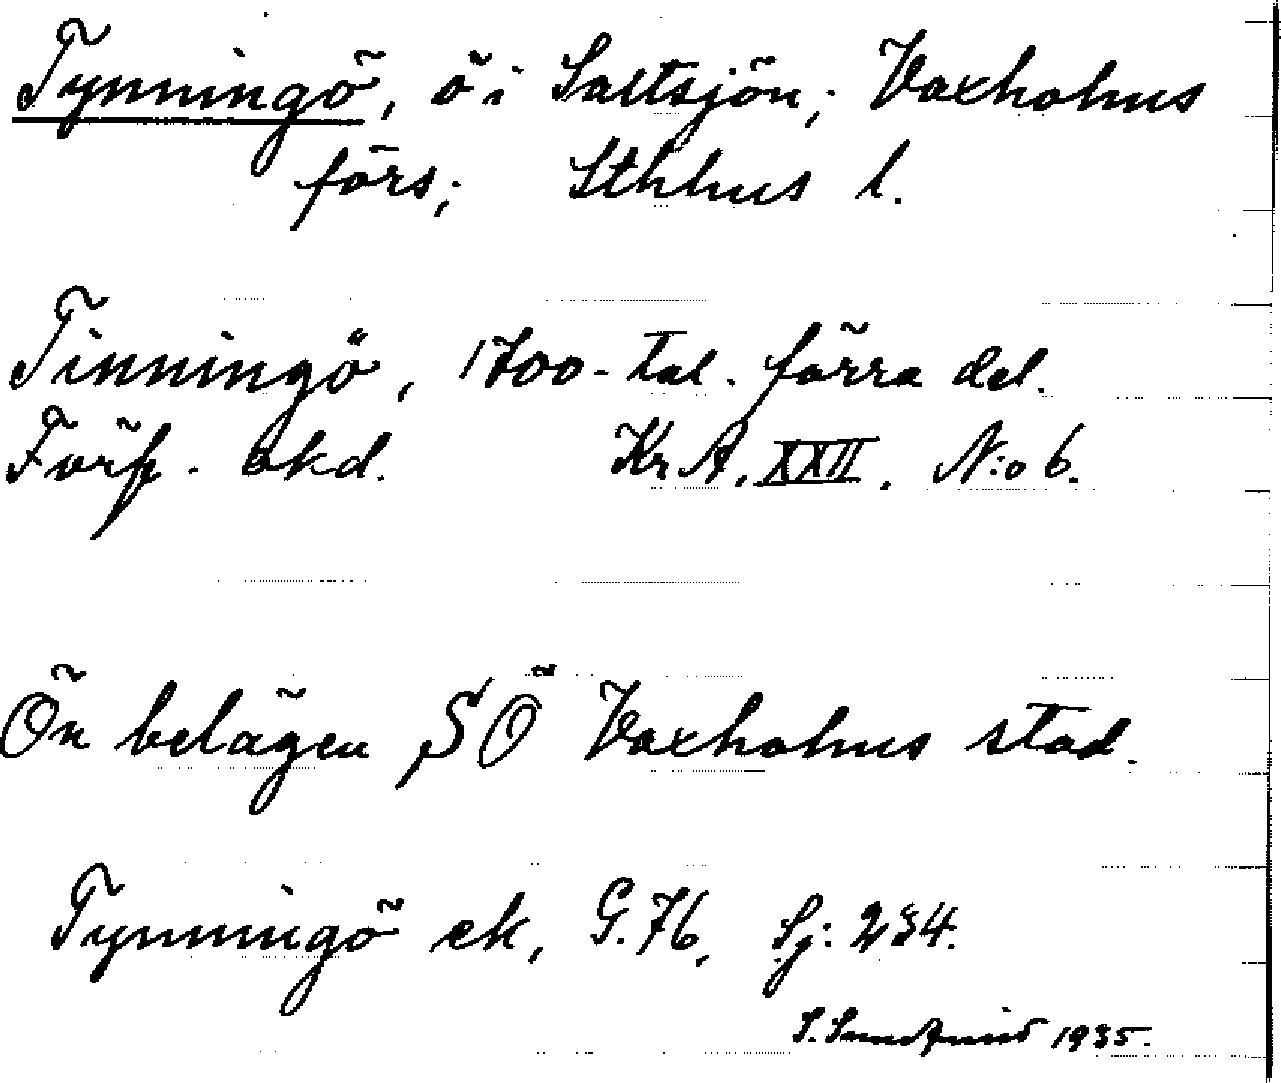 Tynningö, ö i Saltsjön; Vaxholms
förs; Sthlms l.
Tinningö, 1700-tal. förra del.
Förf. okd. Kr A. XXII. N:o 6.
Ön belägen SÖ Vaxholms stad.
Tynningö ek, G. 76, Sj: 234.
S. Sundqvist 1935.